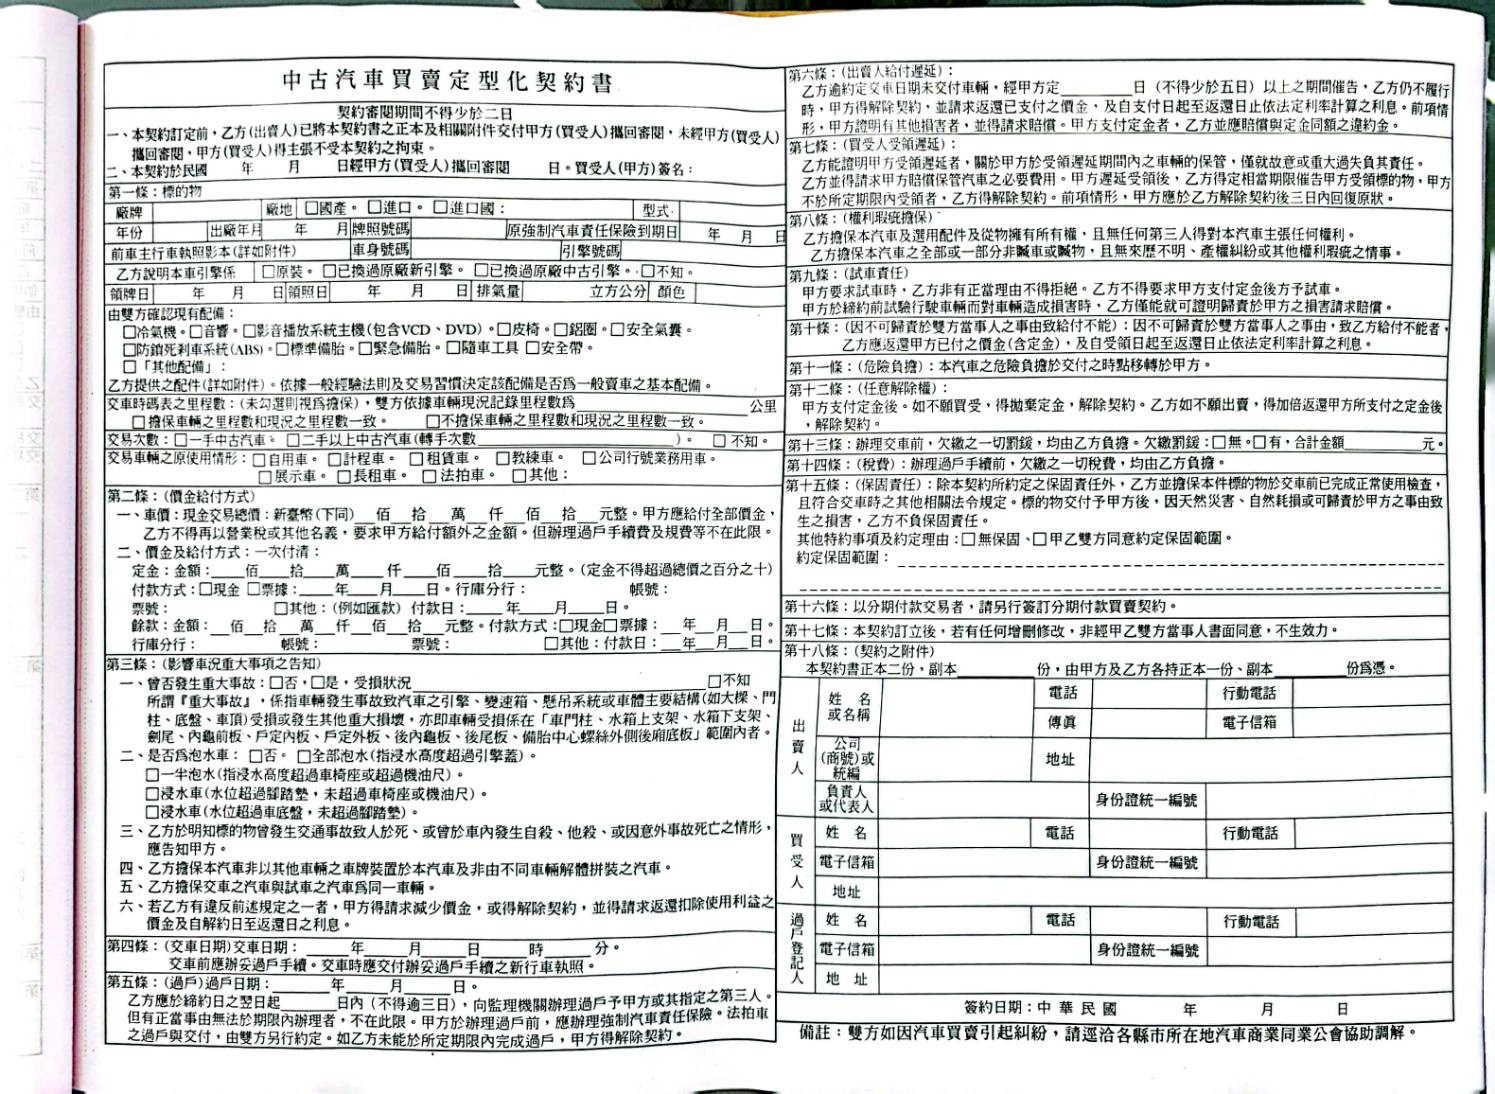 中古汽車買賣定型化契約書
契約審閱期間不得少於二日
一、本契約訂定前，乙方(出賣人)已將本契約書之正本及相關附件交付甲方(買受人)攜回審閱，未經甲方(買受人)
攜回審閱，甲方(買受人)得主張不受本契約之拘束。
二、本契約於民國　年　月　日經甲方(買受人)攜回審閱　日。買受人(甲方)簽名：
第一條：標的物
廠牌　廠地　□國產。□進口。□進口國：　型式
年份　出廠年月　年　月　牌照號碼　原強制汽車責任保險到期日　年　月　日
前車主行車執照影本(詳如附件)　車身號碼　引擎號碼
乙方說明本車引擎係　□原裝。□已換過原廠新引擎。□已換過原廠中古引擎。□不知。
領牌日　年　月　日　領照日　年　月　日　排氣量　立方公分　顏色
由雙方確認現有配備：
□冷氣機。□音響。□影音播放系統主機(包含VCD、DVD)。□皮椅。□鋁圈。□安全氣囊。
□防鎖死剎車系統(ABS)。□標準備胎。□緊急備胎。□隨車工具 □安全帶。
□「其他配備」：
乙方提供之配件(詳如附件)。依據一般經驗法則及交易習慣決定該配備是否為一般賣車之基本配備。
交車時碼表之里程數：(未勾選則視為擔保)，雙方依據車輛現況記錄里程數為　公里
□擔保車輛之里程數和現況之里程數一致。　□不擔保車輛之里程數和現況之里程數一致。
交易次數：□一手中古汽車。□二手以上中古汽車(轉手次數　)。　□不知。
交易車輛之原使用情形：□自用車。□計程車。□租賃車。□教練車。□公司行號業務用車。
□展示車。□長租車。□法拍車。□其他：
第二條：(價金給付方式)
一、車價：現金交易總價：新臺幣(下同)__佰__拾__萬__仟__佰__拾__元整。甲方應給付全部價金，
乙方不得再以營業稅或其他名義，要求甲方給付額外之金額。但辦理過戶手續費及規費等不在此限。
二、價金及給付方式：一次付清：
定金：金額：____佰____拾____萬____仟____佰____拾____元整。(定金不得超過總價之百分之十)
付款方式：□現金 □票據：____年____月____日。行庫分行：　帳號：
票號：　□其他：(例如匯款) 付款日：____年____月____日。
餘款：金額：__佰__拾__萬__仟__佰__拾__元整。付款方式：□現金□票據：__年__月__日。
行庫分行：　帳號：　票號：　□其他：付款日：__年__月__日。
第三條：(影響車況重大事項之告知)
一、曾否發生重大事故：□否，□是，受損狀況　□不知
所謂『重大事故』，係指車輛發生事故致汽車之引擎、變速箱、懸吊系統或車體主要結構(如大樑、門
柱、底盤、車頂)受損或發生其他重大損壞，亦即車輛受損係在「車門柱、水箱上支架、水箱下支架、
劍尾、內龜前板、戶定內板、戶定外板、後內龜板、後尾板、備胎中心螺絲外側後廂底板」範圍內者。
二、是否為泡水車：□否。□全部泡水(指浸水高度超過引擎蓋)。
□一半泡水(指浸水高度超過車椅座或超過機油尺)。
□浸水車(水位超過腳踏墊，未超過車椅座或機油尺)。
□浸水車(水位超過車底盤，未超過腳踏墊)。
三、乙方於明知標的物曾發生交通事故致人於死、或曾於車內發生自殺、他殺、或因意外事故死亡之情形，
應告知甲方。
四、乙方擔保本汽車非以其他車輛之車牌裝置於本汽車及非由不同車輛解體拼裝之汽車。
五、乙方擔保交車之汽車與試車之汽車為同一車輛。
六、若乙方有違反前述規定之一者，甲方得請求減少價金，或得解除契約，並得請求返還扣除使用利益之
價金及自解約日至返還日之利息。
第四條：(交車日期)交車日期：____年____月____日____時____分。
交車前應辦妥過戶手續。交車時應交付辦妥過戶手續之新行車執照。
第五條：(過戶)過戶日期：____年____月____日。
乙方應於締約日之翌日起____日內(不得逾三日)，向監理機關辦理過戶予甲方或其指定之第三人。
但有正當事由無法於期限內辦理者，不在此限。甲方於辦理過戶前，應辦理強制汽車責任保險。法拍車
之過戶與交付，由雙方另行約定。如乙方未能於所定期限內完成過戶，甲方得解除契約。
第六條：(出賣人給付遲延)：
乙方逾約定交車日期未交付車輛，經甲方定________日(不得少於五日)以上之期間催告，乙方仍不履行
時，甲方得解除契約，並請求返還已支付之價金，及自支付日起至返還日止依法定利率計算之利息。前項情
形，甲方證明有其他損害者，並得請求賠償。甲方支付定金者，乙方並應賠償與定金同額之違約金。
第七條：(買受人受領遲延)
乙方能證明甲方受領遲延者，關於甲方於受領遲延期間內之車輛的保管，僅就故意或重大過失負其責任。
乙方並得請求甲方賠償保管汽車之必要費用。甲方遲延受領後，乙方得定相當期限催告甲方受領標的物，甲方
不於所定期限內受領者，乙方得解除契約。前項情形，甲方應於乙方解除契約後三日內回復原狀。
第八條：(權利瑕疵擔保)
乙方擔保本汽車及選用配件及從物擁有所有權，且無任何第三人得對本汽車主張任何權利。
乙方擔保本汽車之全部或一部分非贓車或贓物，且無來歷不明、產權糾紛或其他權利瑕疵之情事。
第九條：(試車責任)
甲方要求試車時，乙方非有正當理由不得拒絕。乙方不得要求甲方支付定金後方予試車。
甲方於締約前試驗行駛車輛而對車輛造成損害時，乙方僅能就可證明歸責於甲方之損害請求賠償。
第十條：(因不可歸責於雙方當事人之事由致給付不能)：因不可歸責於雙方當事人之事由，致乙方給付不能者，
乙方應返還甲方已付之價金(含定金)，及自受領日起至返還日止依法定利率計算之利息。
第十一條：(危險負擔)：本汽車之危險負擔於交付之時點移轉於甲方。
第十二條：(任意解除權)：
甲方支付定金後。如不願買受，得拋棄定金，解除契約。乙方如不願出賣，得加倍返還甲方所支付之定金後
，解除契約。
第十三條：辦理交車前，欠繳之一切罰鍰，均由乙方負擔。欠繳罰鍰：□無。□有，合計金額________元。
第十四條：(稅費)：辦理過戶手續前，欠繳之一切稅費，均由乙方負擔。
第十五條：(保固責任)：除本契約所約定之保固責任外，乙方並擔保本件標的物於交車前已完成正常使用檢查，
且符合交車時之其他相關法令規定。標的物交付予甲方後，因天然災害、自然耗損或可歸責於甲方之事由致
生之損害，乙方不負保固責任。
其他特約事項及約定理由：□無保固、□甲乙雙方同意約定保固範圍。
約定保固範圍：
第十六條：以分期付款交易者，請另行簽訂分期付款買賣契約。
第十七條：本契約訂立後，若有任何增刪修改，非經甲乙雙方當事人書面同意，不生效力。
第十八條：(契約之附件)
本契約書正本二份，副本________份，由甲方及乙方各持正本一份、副本________份為憑。
出賣人　姓名或名稱　電話　行動電話
傳真　電子信箱
公司(商號)或統編　地址
負責人或代表人　身份證統一編號
買受人　姓名　電話　行動電話
電子信箱　身份證統一編號
地址
過戶登記人　姓名　電話　行動電話
電子信箱　身份證統一編號
地址
簽約日期：中華民國　年　月　日
備註：雙方如因汽車買賣引起糾紛，請逕洽各縣市所在地汽車商業同業公會協助調解。